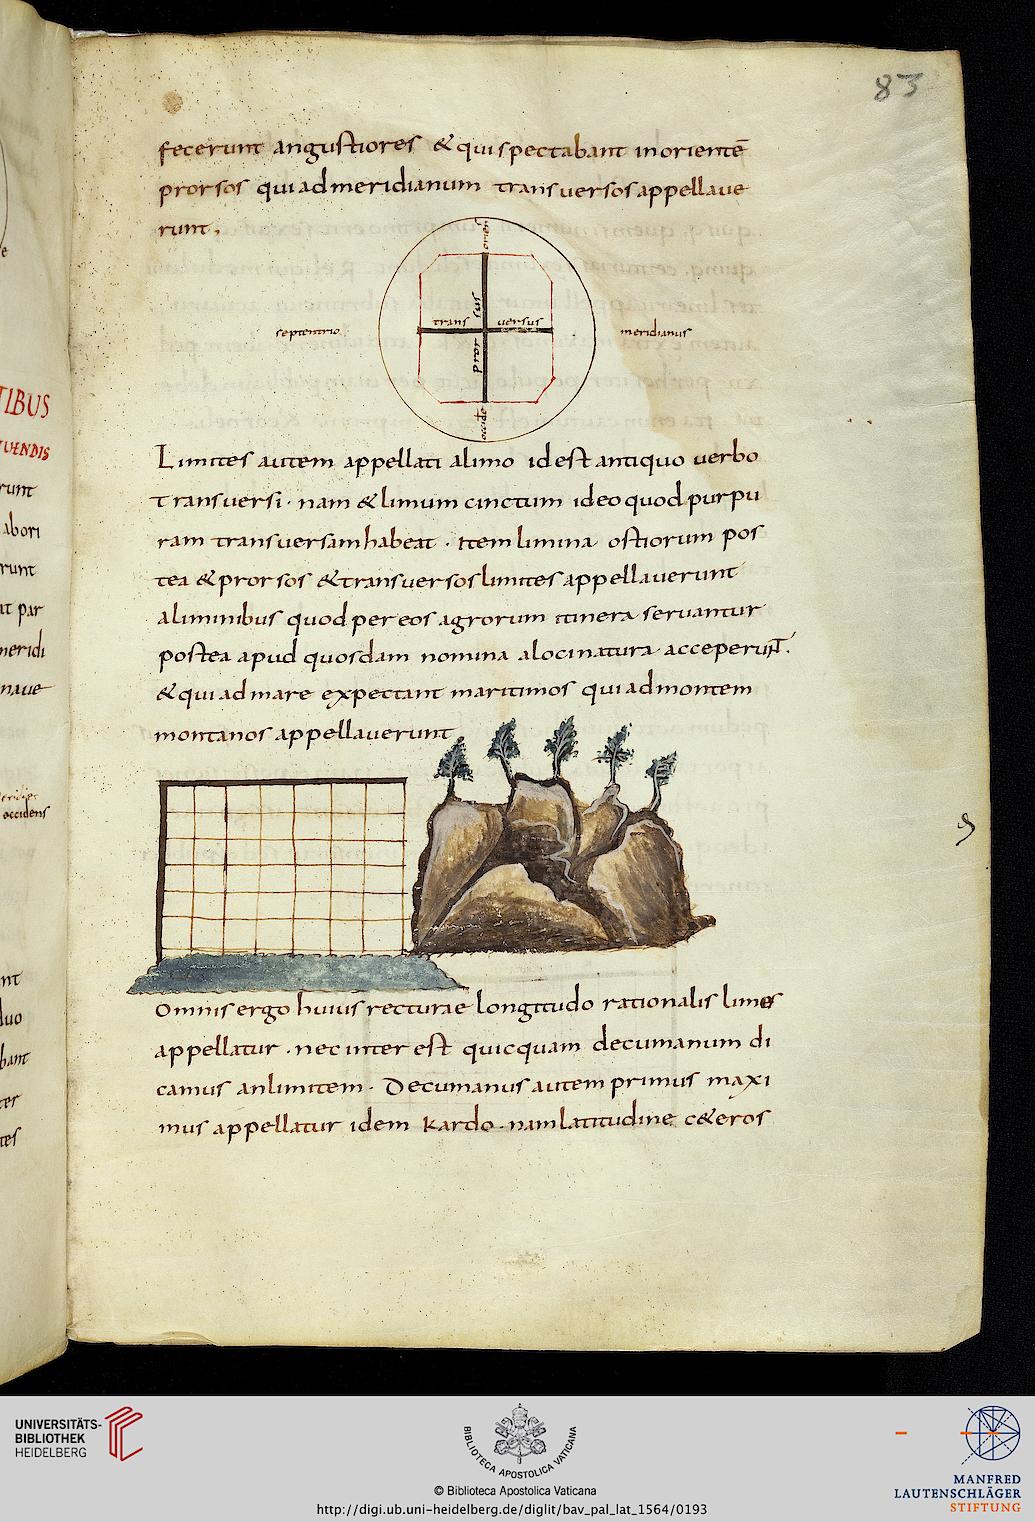 83
fecerunt angustiores & qui spectabant in orientē
prorsos qui ad meridianum transuersos appellaue
runt.
orien
septentrio
trans uersus
pror sus
meridianus
occide
Limites autem appellati a limo id est antiquo uerbo
transuersi . nam & limum cinctum ideo quod purpu
ram transuersam habeat . Item limina ostiorum pos
tea & prorsos & transuersos limites appellauerunt
a liminibus quod per eos agrorum itinera seruantur
postea apud quosdam nomina a loci natura acceperunt.
& qui ad mare expectant maritimos qui ad montem
montanos appellauerunt
Omnis ergo huius recturae longitudo rationalis limes
appellatur . nec inter est quicquam decumanum di
camus an limitem . Decumanus autem primus maxi
mus appellatur idem kardo . nam latitudine c&eros
TIBUS
UENDIS
runt
abori
runt
ut par
meridi
naue
occidens
nt
duo
bant
ter
tes
UNIVERSITÄTS-
BIBLIOTHEK
HEIDELBERG
BIBLIOTECA APOSTOLICA VATICANA
© Biblioteca Apostolica Vaticana
http://digi.ub.uni-heidelberg.de/diglit/bav_pal_lat_1564/0193
MANFRED
LAUTENSCHLÄGER
STIFTUNG